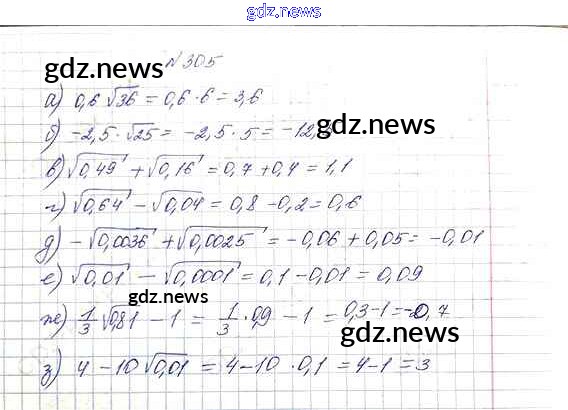 gdz.news
№305
gdz.news
а) 0,6 √36 = 0,6 · 6 = 3,6
б) -2,5 · √25 = -2,5 · 5 = -12,
gdz.news
в) √0,49 + √0,16 = 0,7 + 0,4 = 1,1
г) √0,64 - √0,04 = 0,8 - 0,2 = 0,6
gdz.news
д) -√0,0036 + √0,0025 = -0,06 + 0,05 = -0,01
е) √0,01 - √0,0001 = 0,1 - 0,01 = 0,09
gdz.news
ж) 1/3 √0,81 - 1 = 1/3 · 0,9 - 1 = 0,3 - 1 = -0,7
gdz.news
з) 4 - 10 √0,01 = 4 - 10 · 0,1 = 4 - 1 = 3